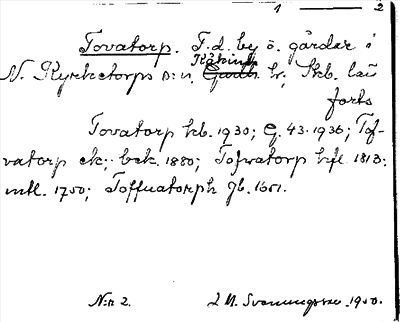 1 — 2
Tovatorp. F.d. by o. gårdar i
N. Kyrketorps s:n, Kåkinds hr, Skb. län
forts
Tovatorp kb. 1930; G. 43. 1936; Tof-
vatorp ek. bek. 1880; Tofwatorp hfl 1813;
mtl. 1750; Toffuatorph Jb. 1651.
N:r 2. 1950.